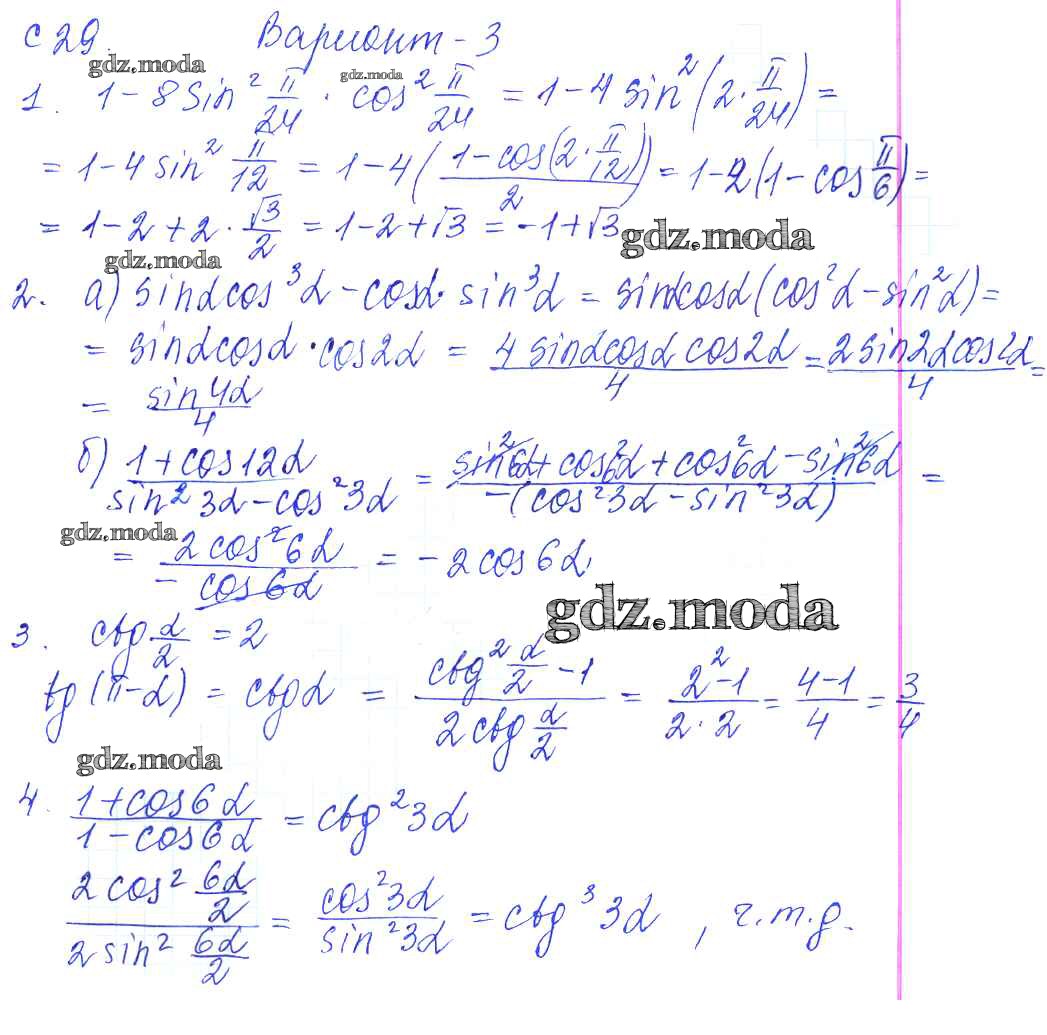 С 29. Вариант - 3
gdz.moda gdz.moda
1. 1 - 8 sin² π/24 · cos² π/24 = 1 - 4 sin² (2 · π/24) =
= 1 - 4 sin² π/12 = 1 - 4 ( (1 - cos(2 · π/12))/2 ) = 1 - 2 (1 - cos π/6) =
= 1 - 2 + 2 · √3/2 = 1 - 2 + √3 = -1 + √3
gdz.moda
gdz.moda
2. а) sinα cos³α - cosα · sin³α = sinα cosα (cos²α - sin²α) =
= sinα cosα · cos2α = (4 sinα cosα cos2α)/4 = (2 sin2α cos2α)/4 =
= sin4α/4
б) (1 + cos12α)/(sin²3α - cos²3α) = (sin²6α + cos²6α + cos²6α - sin²6α)/(-(cos²3α - sin²3α)) =
gdz.moda
= (2 cos²6α)/(- cos6α) = - 2 cos6α
gdz.moda
3. ctg α/2 = 2
tg (π - α) = ctgα = (ctg² α/2 - 1)/(2 ctg α/2) = (2² - 1)/(2 · 2) = (4 - 1)/4 = 3/4
gdz.moda
4. (1 + cos6α)/(1 - cos6α) = ctg²3α
(2 cos² 6α/2)/(2 sin² 6α/2) = cos²3α/sin²3α = ctg³3α , ч.т.д.